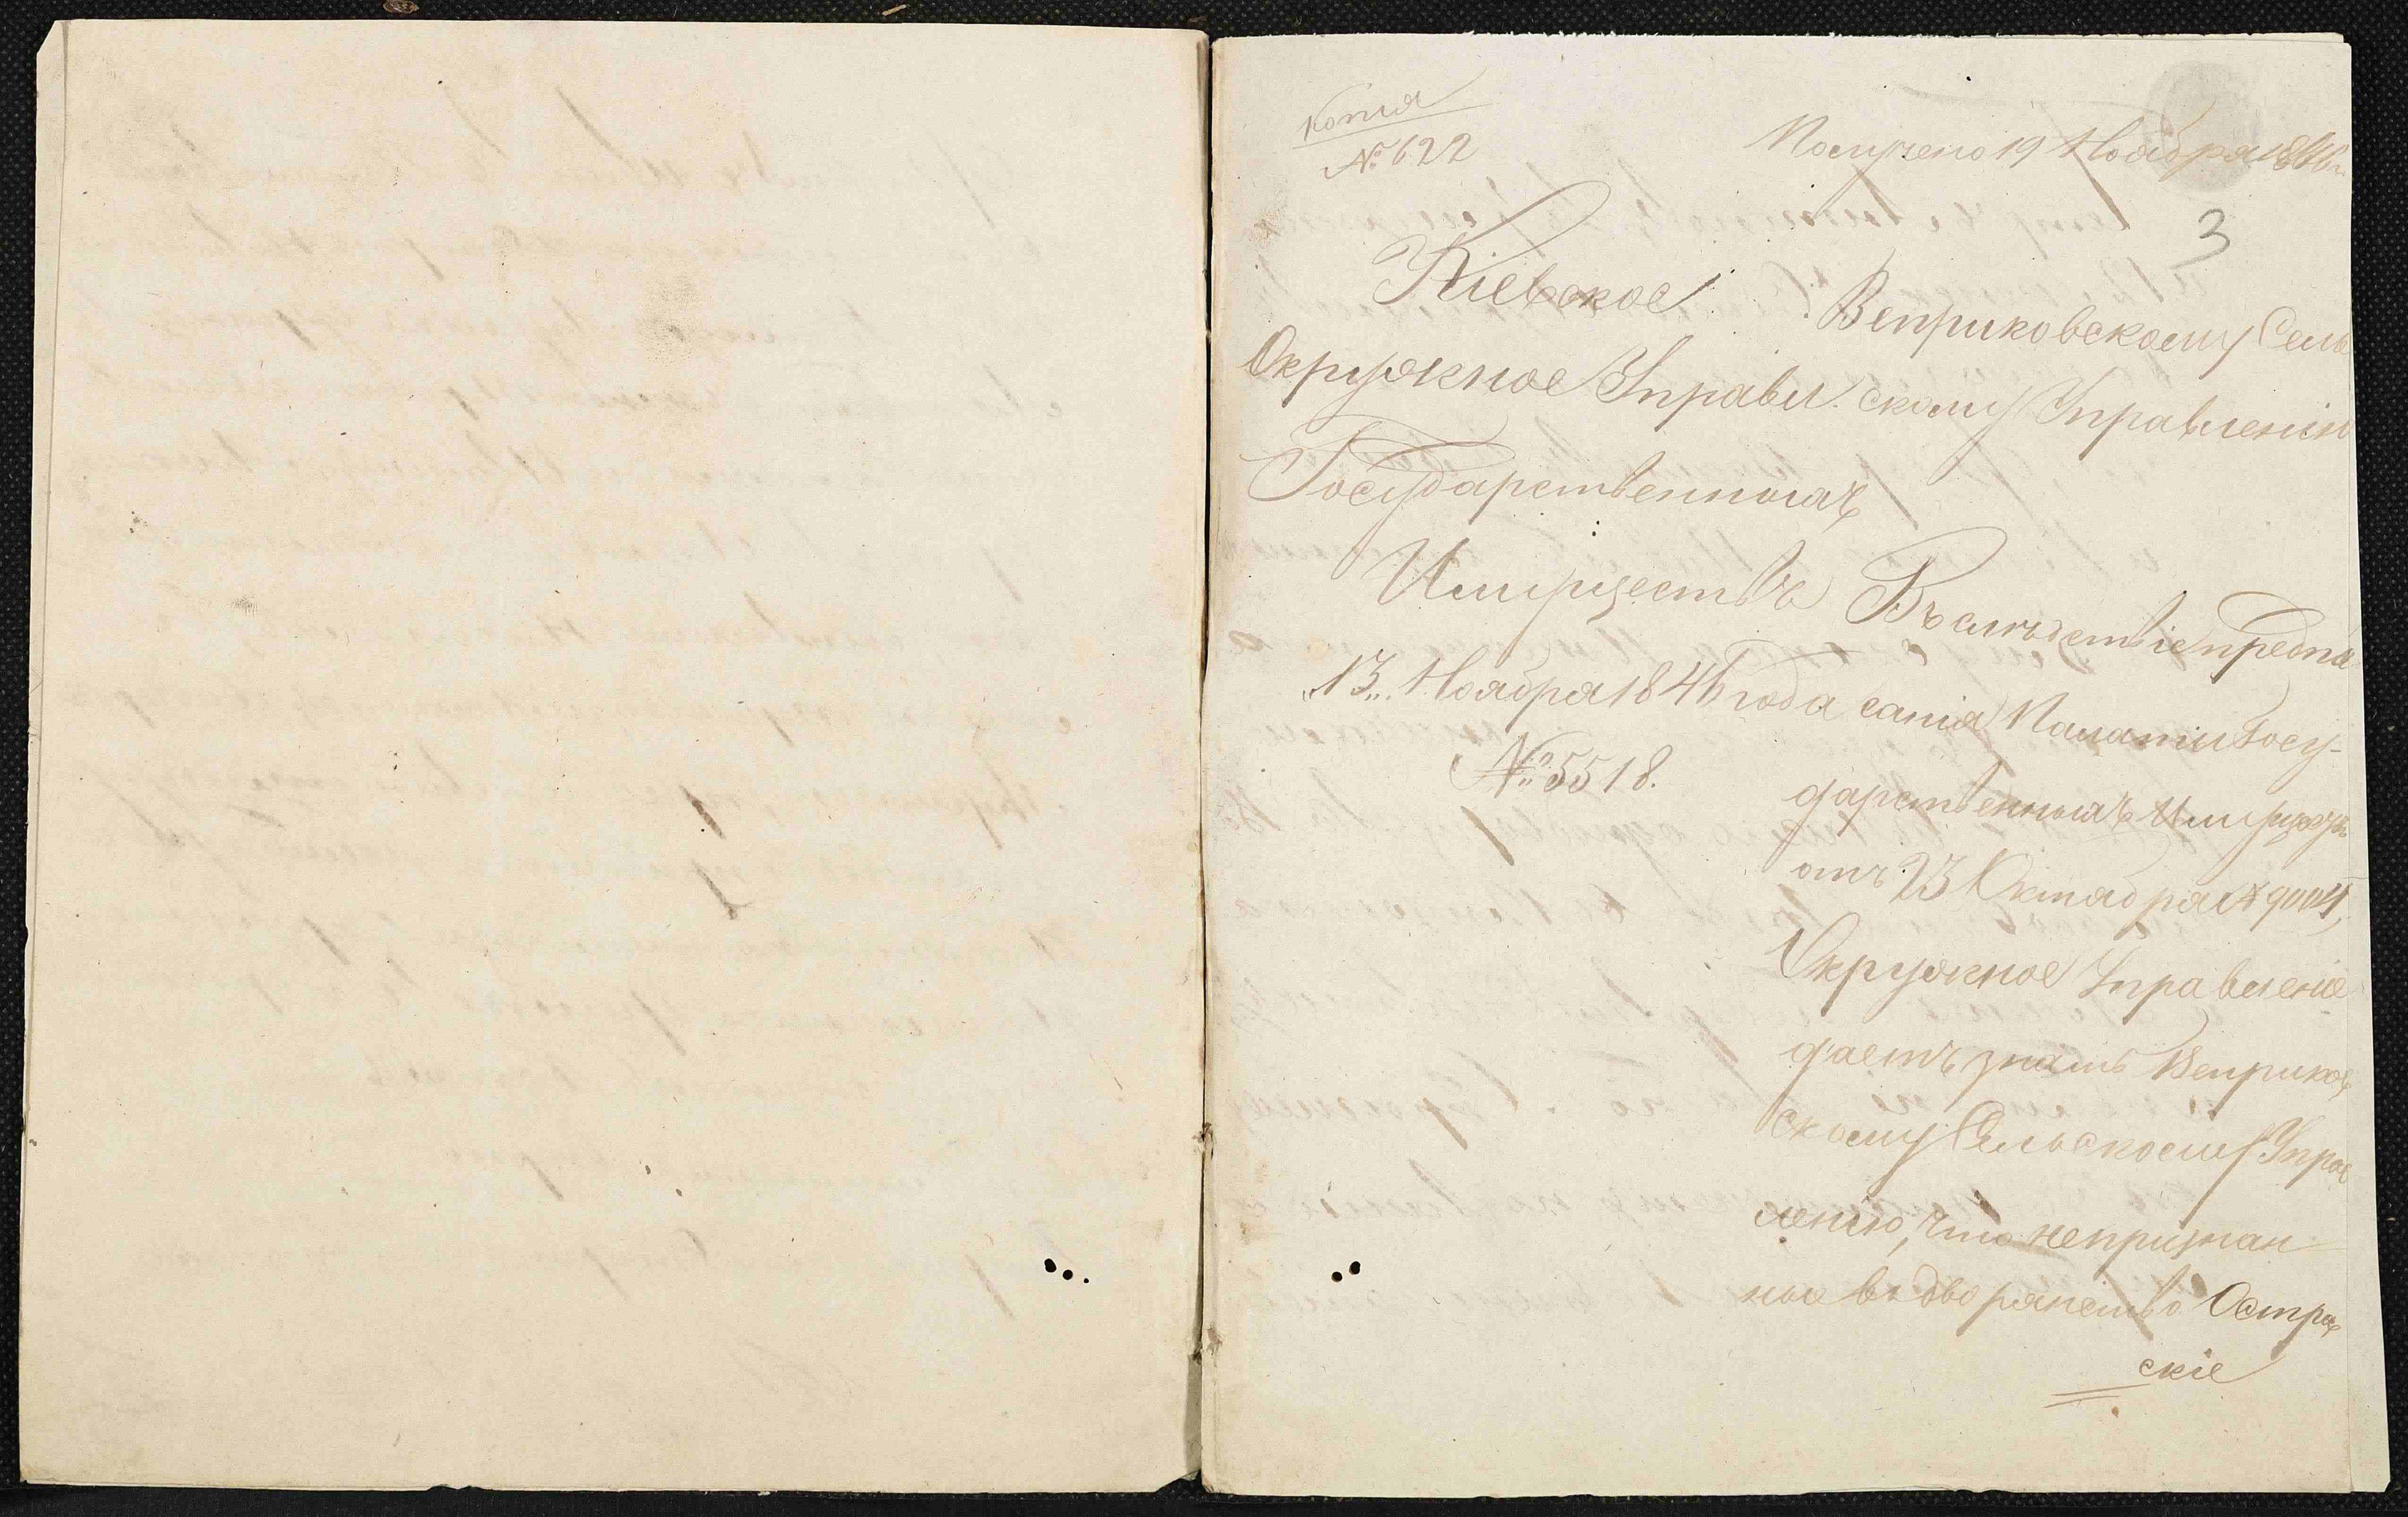 копия
№ 622
Получено 19 Ноября 1846 г.
3
Кіевское
Окружное Управл.
Государственныхъ
Имуществъ
„13„ Ноября 1846 года
№ 5518.
Веприковскому Сель
скому Управленію
Въ слѣдствіе предпи
санія Палаты Госу-
дарственныхъ Имуществъ
отъ 23 Октября № 9004,
Окружное Управленіе
даетъ знать Веприков
скому Сельскому Управ
ленію, что непризнан
ные въ дворянство Остров
скіе